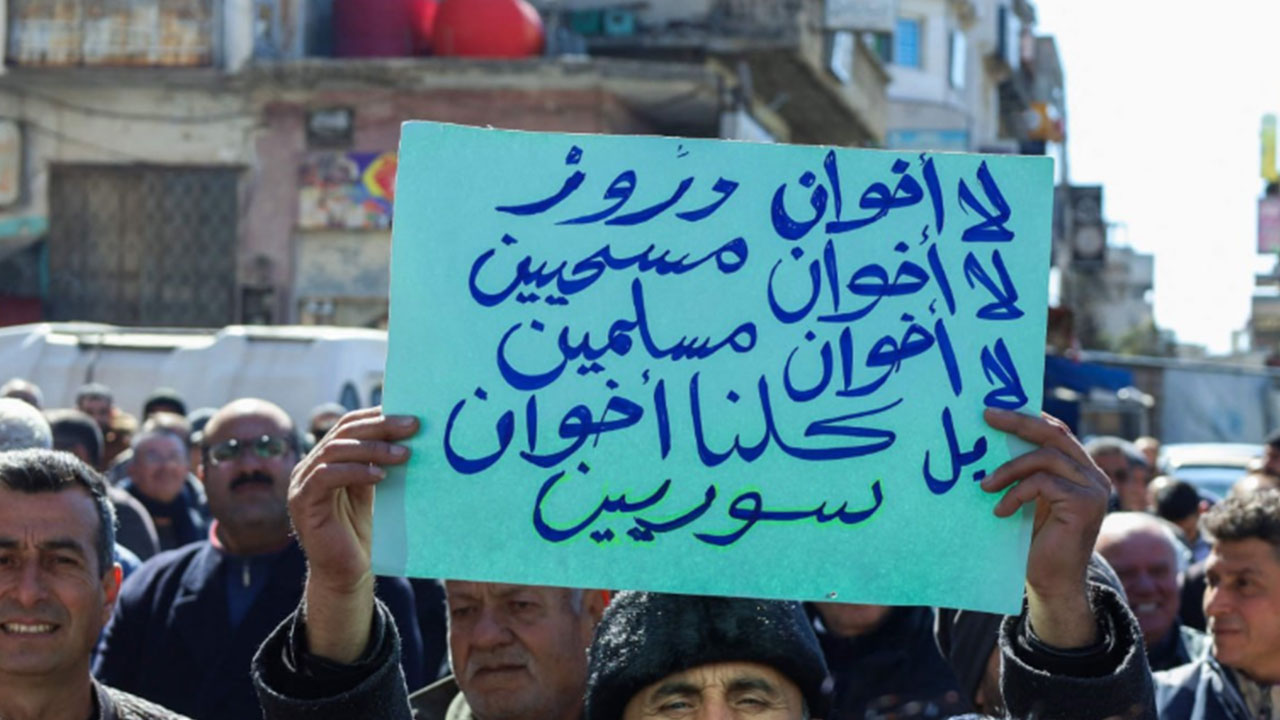 لا أخوان دروز
لا أخوان مسحيين
لا أخوان مسلمين
بل كلنا أخوان
سوريين